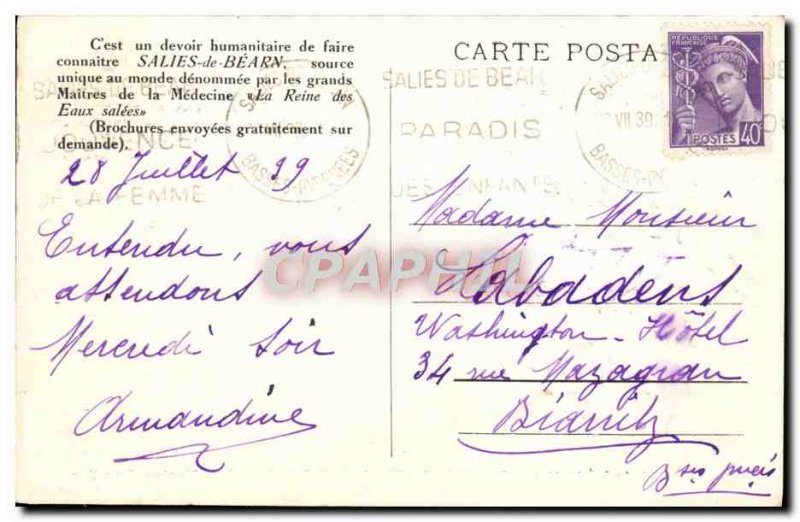 C'est un devoir humanitaire de faire
connaitre SALIES-de-BÉARN, source
unique au monde dénommée par les grands
Maîtres de la Médecine «La Reine des
Eaux salées»
(Brochures envoyées gratuitement sur
demande).
28 Juillet 39
Entendu, vous
attendons
Mercredi soir
Armandine
CARTE POSTA
SALIES DE BÉARN
PARADIS
DES ENFANTS
JOUVENCE
DE LA FEMME
BASSES-PYRÉNÉES
VII 39
RÉPUBLIQUE
FRANÇAISE
POSTES 40c
Madame Monsieur
Labadens
Washington-Hôtel
34 rue Mazagran
Biarritz
Bses
CPARPHIL